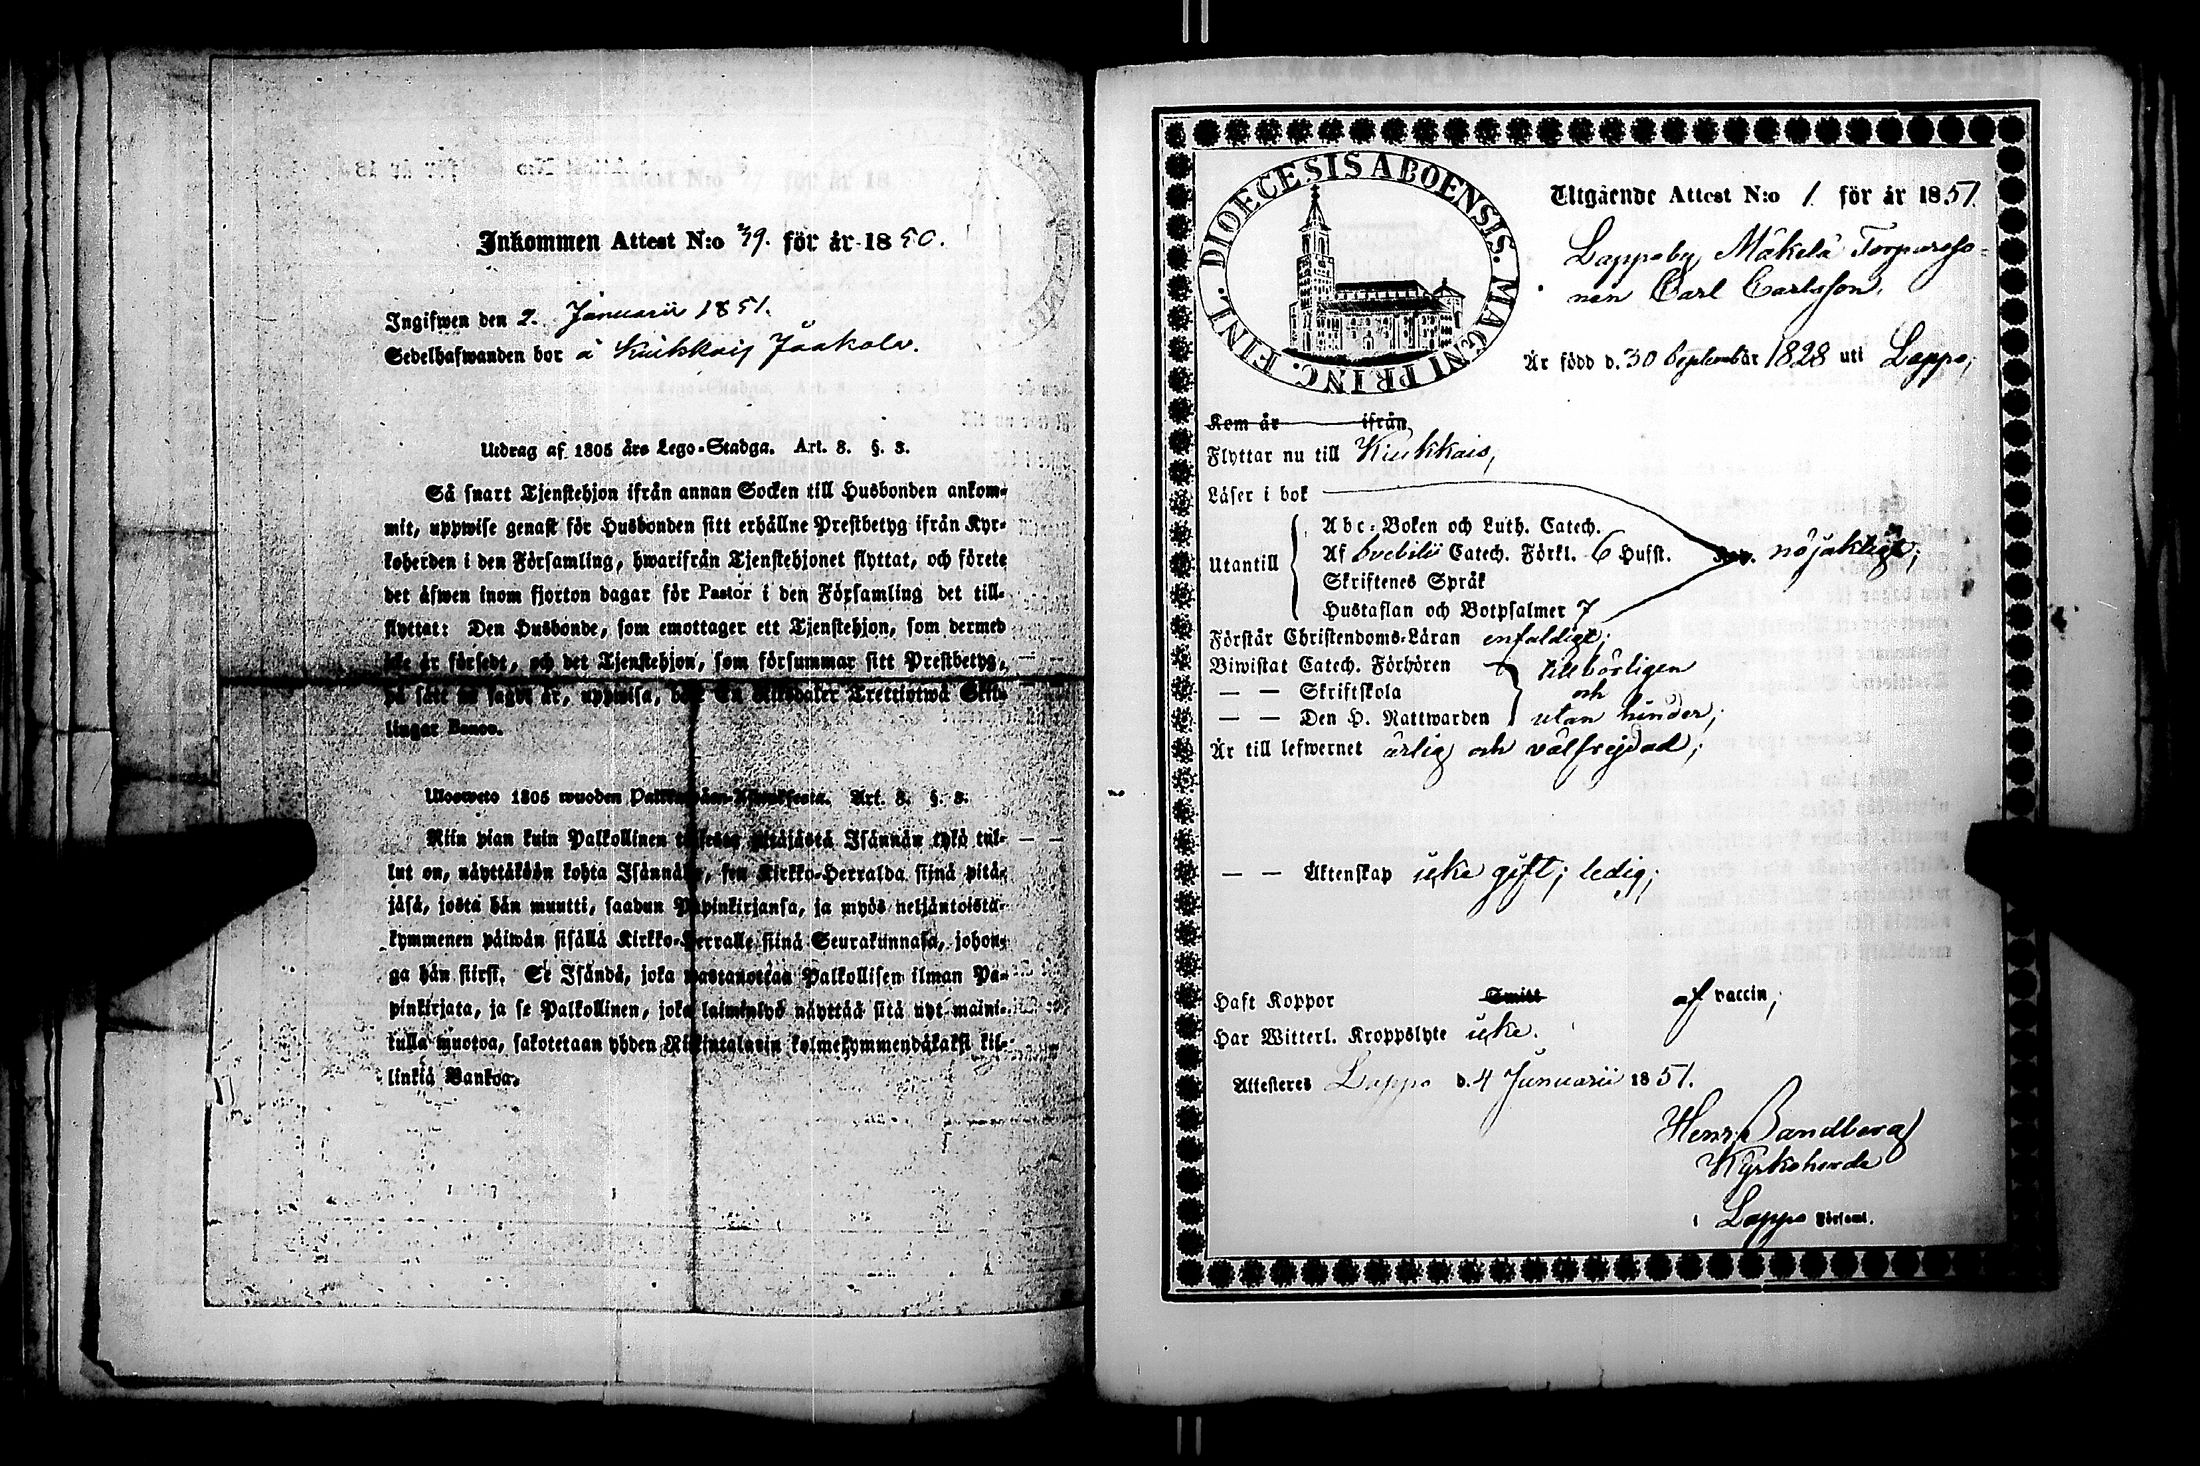 Inkommen Attest N:o 39. för år 1850.
Ingifwen den 2. Januarii 1851.
Sedelhafwanden bor å Kiukkais Jaakola.
Utdrag af 1805 års Lego-Stadga. Art. 8. §. 3.
Så snart Tjenstehjon ifrån annan Socken till Husbonden ankom-
mit, uppwise genast för Husbonden sitt erhållne Prestbetyg ifrån Kyr-
koherden i den Församling, hwarifrån Tjenstehjonet flyttat, och förete
det äfwen inom fjorton dagar för Pastor i den Församling det till-
flyttat: Den Husbonde, som emottager ett Tjenstehjon, som dermed
icke är försedt, och det Tjenstehjon, som försummar sitt Prestbetyg,
på sätt som sagdt är, uppwisa, böte En Riksdaler Trettiotwå Skil-
lingar Banco.
Ulosweto 1805 wuoden Palkollisten Asetuksesta. Art. 8. §. 3.
Niin pian kuin Palkollinen toisesta pitäjästä Isännän tykö tul-
lut on, näyttäköön kohta Isännälle, sen Kirkko-Herralda siinä pitä-
jäsä, josta hän muutti, saadun Papinkirjansa, ja myös neljäntoista-
kymmenen päiwän sisällä Kirkko-Herralle siinä Seurakunnasa, johon-
ga hän siirsi. Se Isändä, joka wastanottaa Palkollisen ilman Pa-
pinkirjata, ja se Palkollinen, joka laiminlyö näyttää sitä nyt maini-
tulla muotoa, sakotetaan yhden Riikintalarin kolmekymmendäkaksi kil-
linkiä Bankoa.
DIOECESIS ABOENSIS. MAGNI PRINC. FINL.
Utgående Attest N:o 1 för år 1851.
Lappoby Mäkelä Torpareso-
nen Carl Carlsson.
Är född d. 30 Septembär 1828 uti Lappo,
Kom år ifrån
Flyttar nu till Kiukkais,
Läser i bok
Abc-Boken och Luth. Catech.
Utantill Af Svebilii Catech. Förkl. 6 Hufst. nöjaktigt;
Skriftenes Språk
Hustaflan och Botpsalmer 7
Förstår Christendoms-Läran enfaldigt;
Biwistat Catech. Förhören tillbörligen
— — Skriftskola och
— — Den H. Nattwarden utan hinder;
Är till lefwernet ärlig och välfrejdad;
— — Äktenskap icke gift; ledig;
Haft Koppor Smitt af vaccin;
Har Witterl. Kroppslyte icke.
Attesteres Lappo d. 4 Januarii 1851.
Henr. Sandberg
Kyrkoherde
i Lappo Församl.